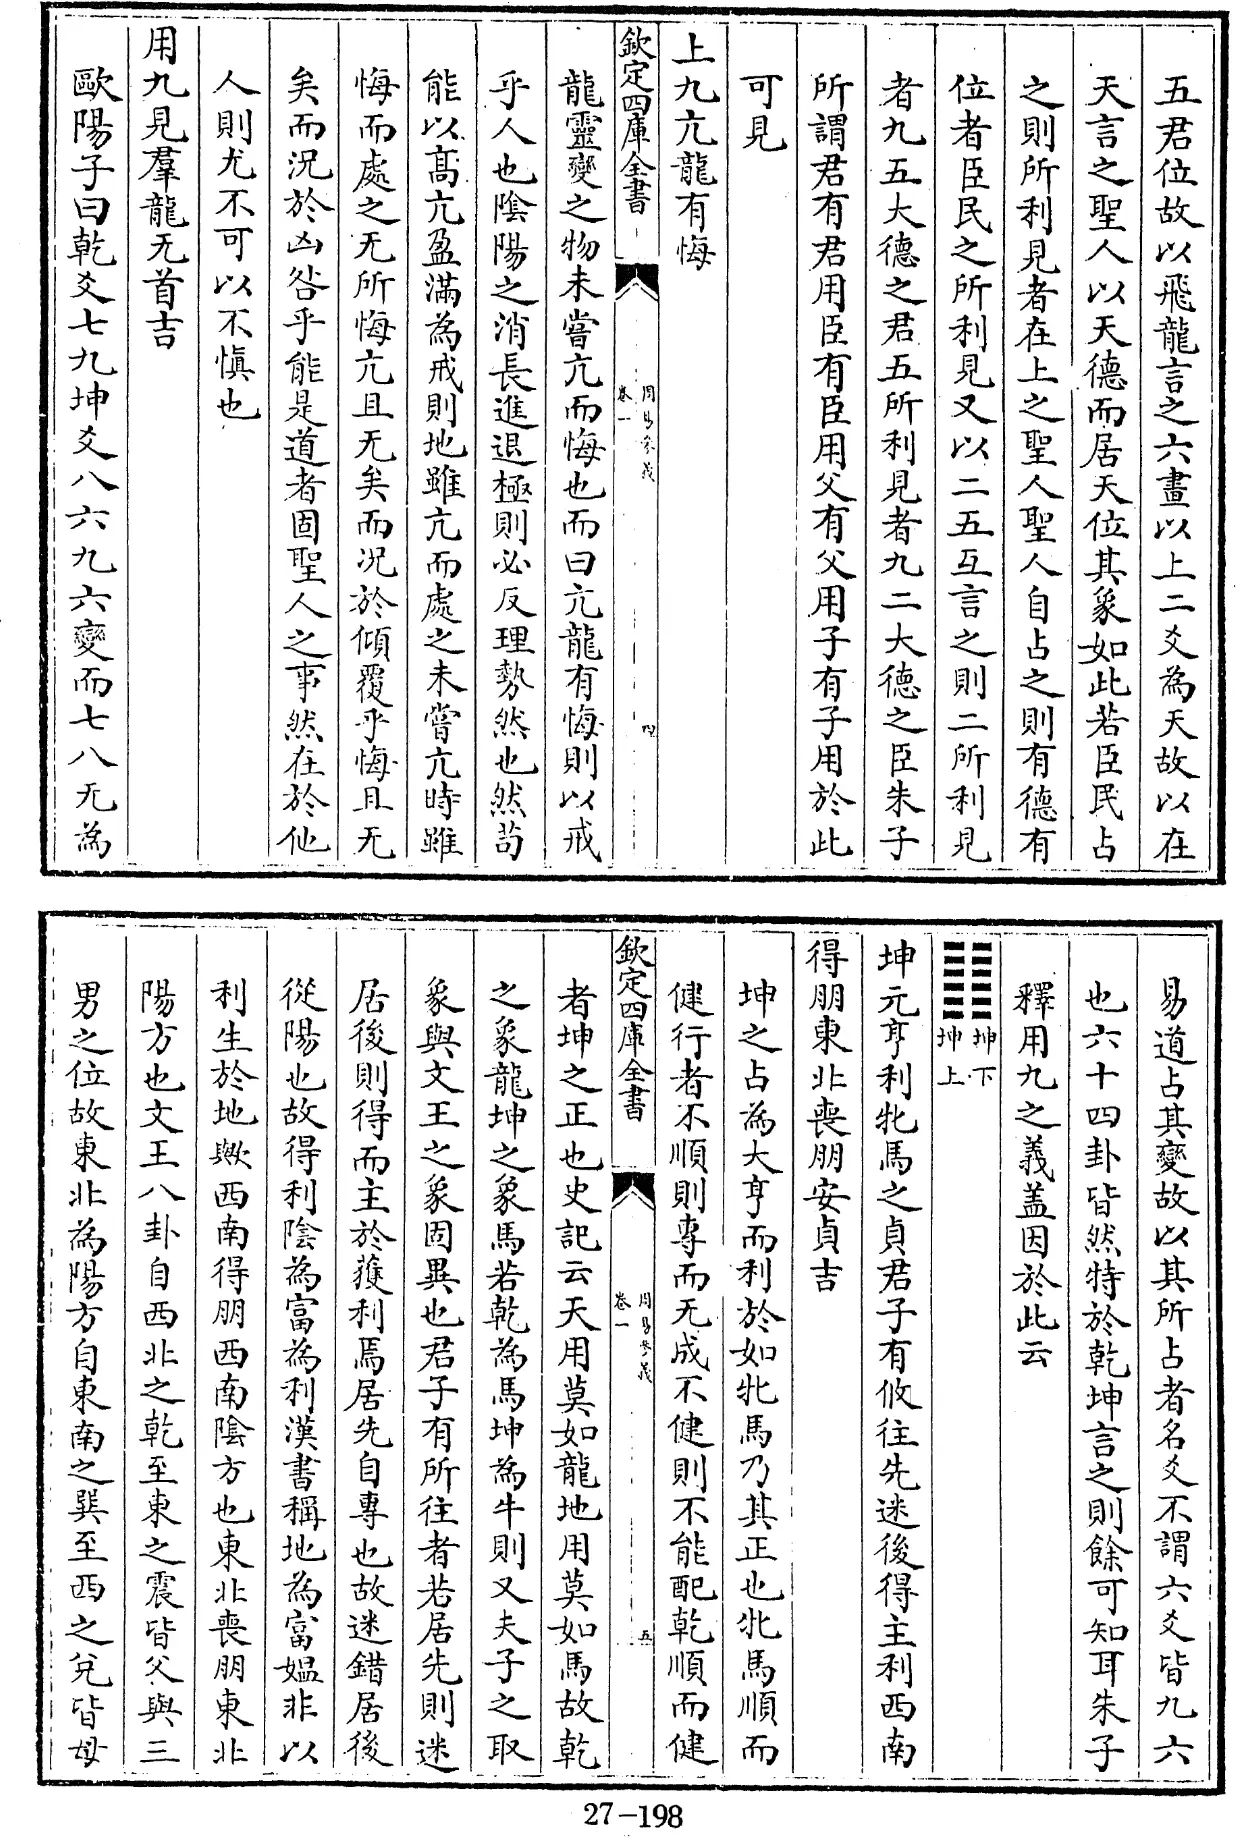 五君位故以飛龍言之六畫以上二爻為天故以在
天言之聖人以天德而居天位其象如此若臣民占
之則所利見者在上之聖人聖人自占之則有德有
位者臣民之所利見又以二五互言之則二所利見
者九五大德之君五所利見者九二大德之臣朱子
所謂君有君用臣有臣用父有父用子有子用於此
可見
上九亢龍有悔
欽定四庫全書
周易參義
卷一
四
龍靈變之物未嘗亢而悔也而曰亢龍有悔則以戒
乎人也陰陽之消長進退極則必反理勢然也然茍
能以髙亢盈滿為戒則地雖亢而處之未嘗亢時雖
悔而處之无所悔亢且无矣而况於傾覆乎悔且无
矣而況於凶咎乎能是道者固聖人之事然在於他
人則尤不可以不慎也
用九見羣龍无首吉
歐陽子曰乾爻七九坤爻八六九六變而七八无為
易道占其變故以其所占者名爻不謂六爻皆九六
也六十四卦皆然特於乾坤言之則餘可知耳朱子
釋用九之義盖因於此云
䷁
坤下
坤上
坤元亨利牝馬之貞君子有攸往先迷後得主利西南
得朋東北喪朋安貞吉
坤之占為大亨而利於如牝馬乃其正也牝馬順而
健行者不順則專而无成不健則不能配乾順而健
欽定四庫全書
周易參義
卷一
五
者坤之正也史記云天用莫如龍地用莫如馬故乾
之象龍坤之象馬若乾為馬坤為牛則又夫子之取
象與文王之象固異也君子有所往者若居先則迷
居後則得而主於獲利焉居先自專也故迷錯居後
從陽也故得利陰為富為利漢書稱地為富媼非以
利生於地歟西南得朋西南陰方也東北喪朋東北
陽方也文王八卦自西北之乾至東之震皆父與三
男之位故東北為陽方自東南之巽至西之兌皆母
27-198